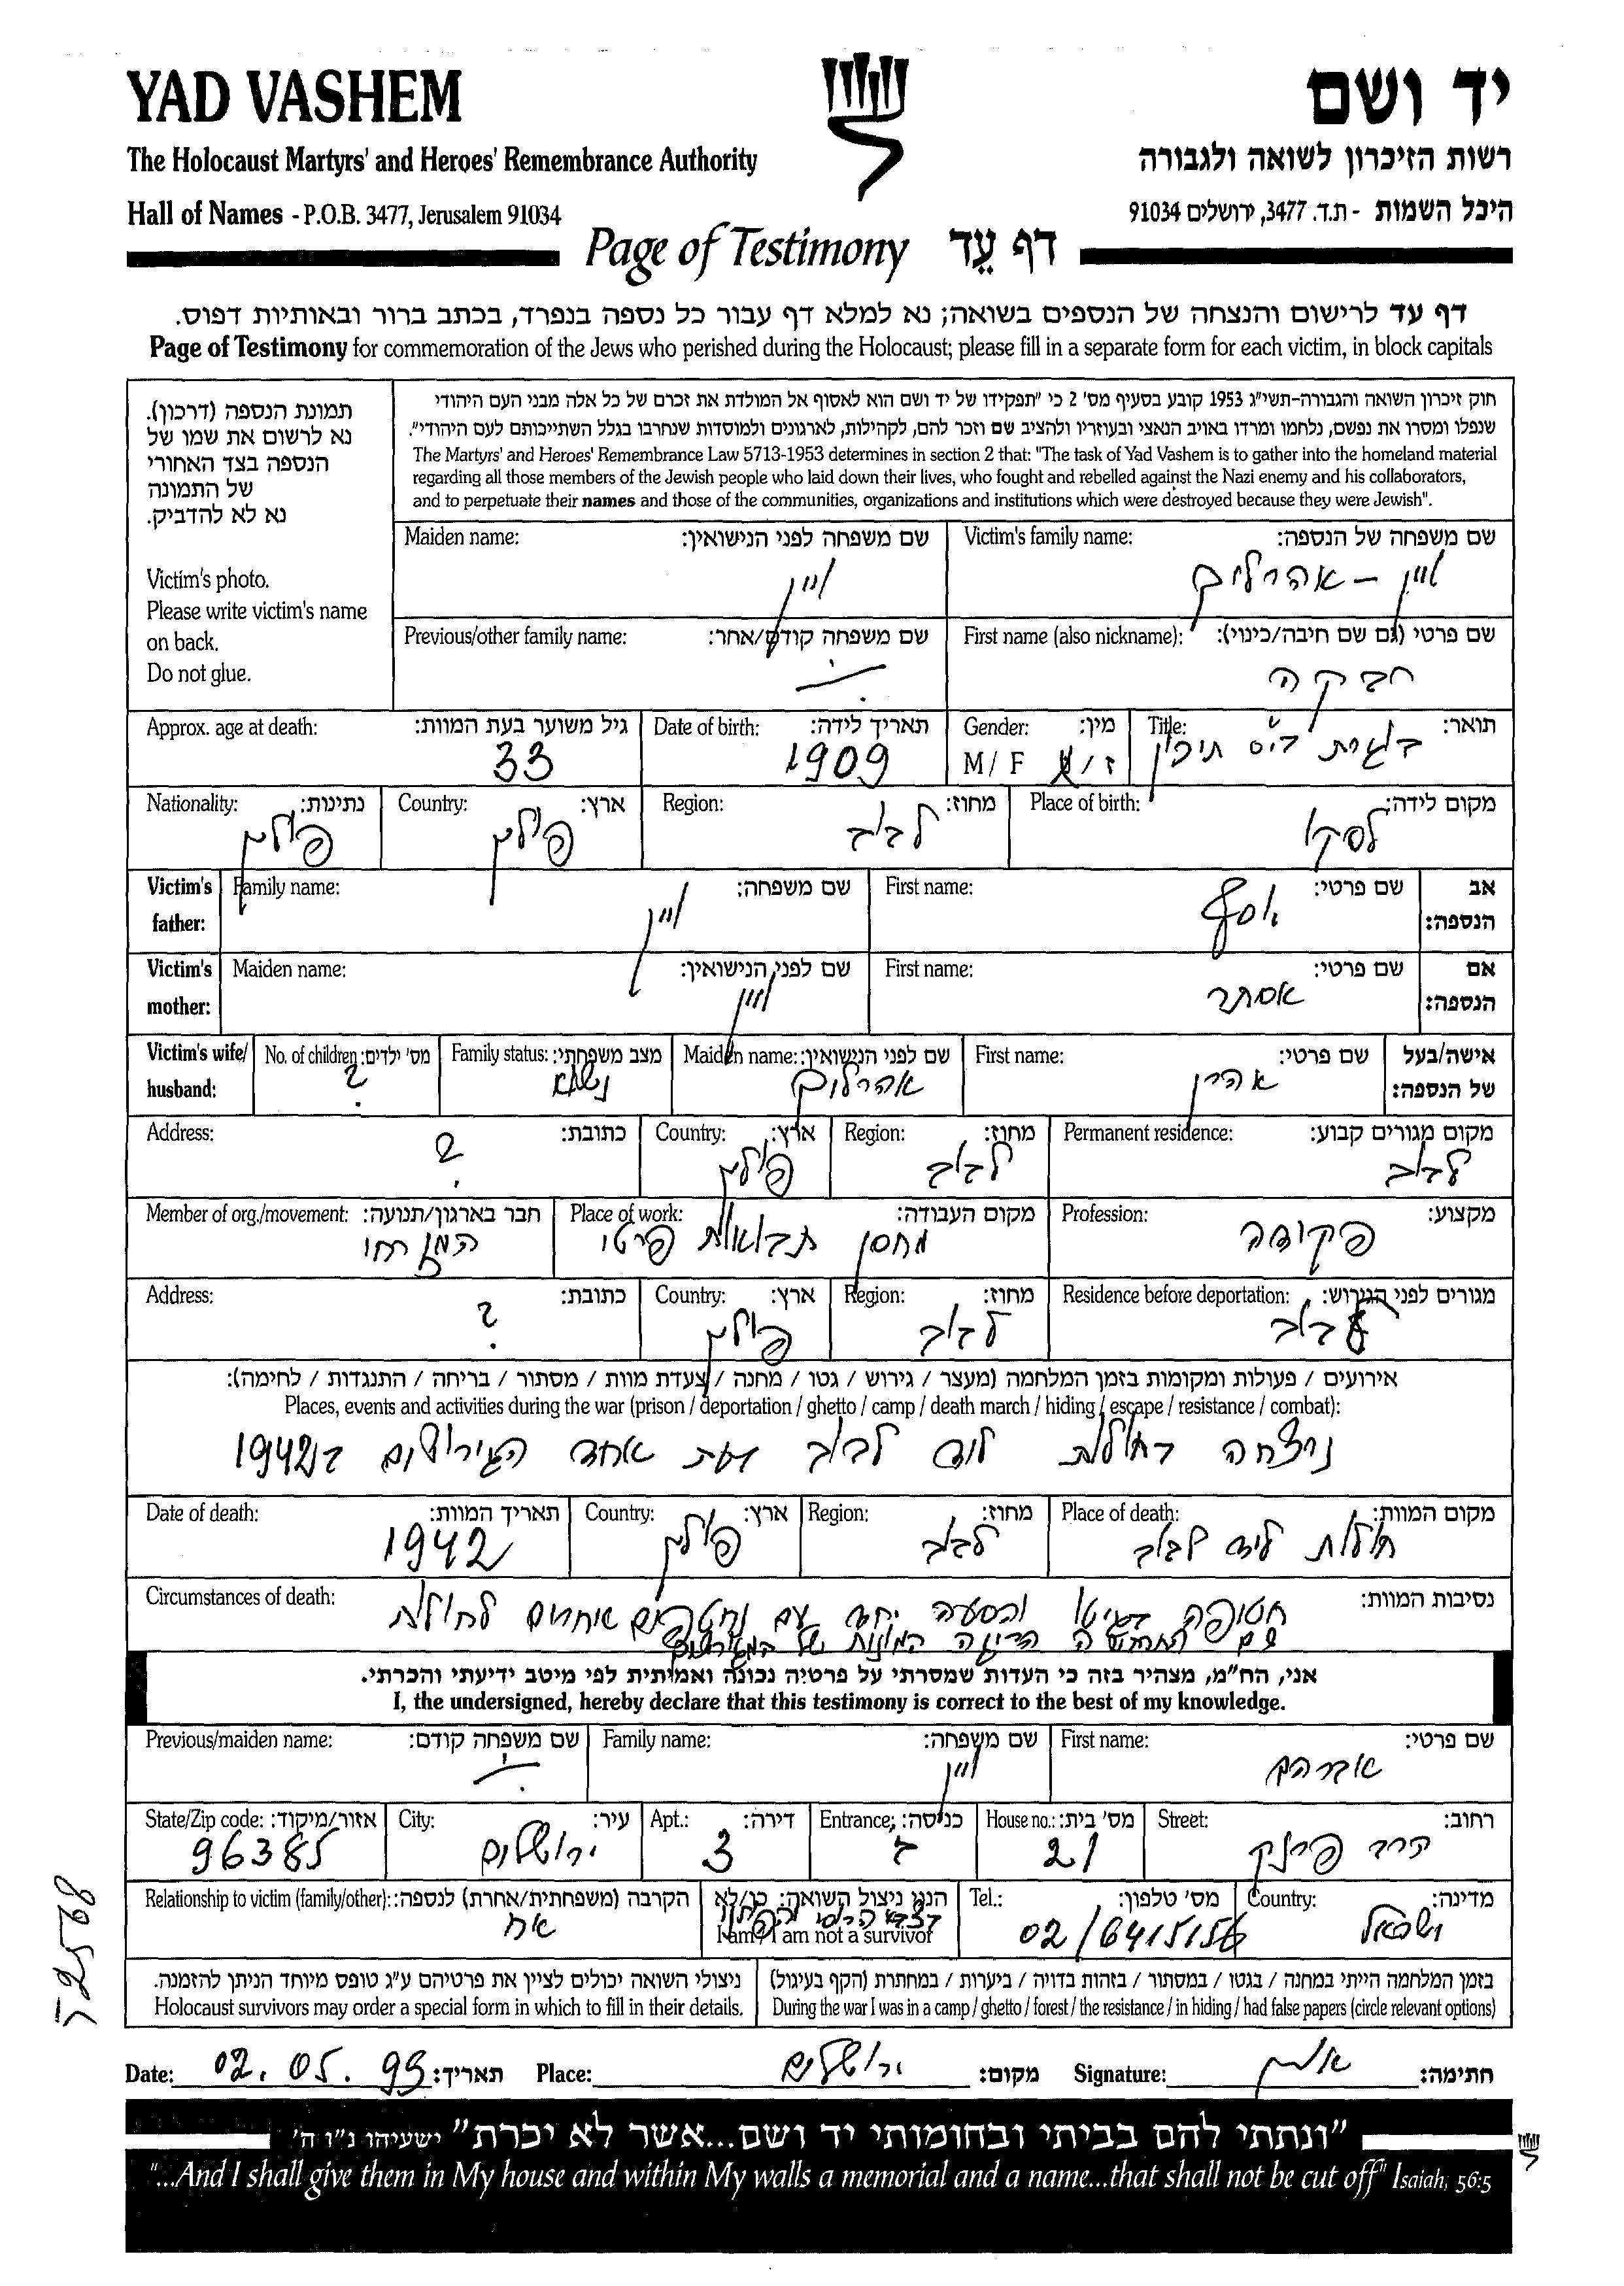 YAD VASHEM
יד ושם
The Holocaust Martyrs' and Heroes' Remembrance Authority
רשות הזיכרון לשואה ולגבורה
Hall of Names - P.O.B. 3477, Jerusalem 91034
היכל השמות - ת.ד. 3477, ירושלים 91034
Page of Testimony דף עֵד
דף עד לרישום והנצחה של הנספים בשואה; נא למלא דף עבור כל נספה בנפרד, בכתב ברור ובאותיות דפוס.
Page of Testimony for commemoration of the Jews who perished during the Holocaust; please fill in a separate form for each victim, in block capitals
תמונת הנספה (דרכון).
נא לרשום את שמו של
הנספה בצד האחורי
של התמונה
נא לא להדביק.
Victim's photo.
Please write victim's name
on back.
Do not glue.
חוק זיכרון השואה והגבורה-תשי"ג 1953 קובע בסעיף מס' 2 כי "תפקידו של יד ושם הוא לאסוף אל המולדת את זכרם של כל אלה מבני העם היהודי
שנפלו ומסרו את נפשם, נלחמו ומרדו באויב הנאצי ובעוזריו ולהציב שם וזכר להם, לקהילות, לארגונים ולמוסדות שנחרבו בגלל השתייכותם לעם היהודי".
The Martyrs' and Heroes' Remembrance Law 5713-1953 determines in section 2 that: "The task of Yad Vashem is to gather into the homeland material
regarding all those members of the Jewish people who laid down their lives, who fought and rebelled against the Nazi enemy and his collaborators,
and to perpetuate their names and those of the communities, organizations and institutions which were destroyed because they were Jewish".
Victim's family name: שם משפחה של הנספה:
ויין - אהרלים
Maiden name: שם משפחה לפני הנישואין:
ויין
First name (also nickname): שם פרטי (גם שם חיבה/כינוי):
רבקה
Previous/other family name: שם משפחה קודם/אחר:
Title: תואר:
בוגרת בי"ס תיכון
Gender: מין:
M / F ז / נ
Date of birth: תאריך לידה:
1909
Approx. age at death: גיל משוער בעת המוות:
33
Place of birth: מקום לידה:
Region: מחוז:
לבוב
Country: ארץ:
פולין
Nationality: נתינות:
פולין
Victim's father: אב הנספה:
First name: שם פרטי:
יוסף
Family name: שם משפחה:
ויין
Victim's mother: אם הנספה:
First name: שם פרטי:
אסתר
Maiden name: שם לפני הנישואין:
ויין
Victim's wife/ husband: אישה/בעל של הנספה:
First name: שם פרטי:
אהרן
Maiden name: שם לפני הנישואין:
אהרלים
Family status: מצב משפחתי:
נשוא
No. of children: מס' ילדים:
?
Permanent residence: מקום מגורים קבוע:
לבוב
Region: מחוז:
לבוב
Country: ארץ:
פולין
Address: כתובת:
?
Profession: מקצוע:
פקידה
Place of work: מקום העבודה:
מחסן תבואות פרטי
Member of org./movement: חבר בארגון/תנועה:
המזרחי
Residence before deportation: מגורים לפני הגירוש:
לבוב
Region: מחוז:
לבוב
Country: ארץ:
פולין
Address: כתובת:
?
אירועים / פעולות ומקומות בזמן המלחמה (מעצר / גירוש / גטו / מחנה / צעדת מוות / מסתור / בריחה / התנגדות / לחימה):
Places, events and activities during the war (prison / deportation / ghetto / camp / death march / hiding / escape / resistance / combat):
נרצחה בחולות ליד לבוב בעת אחד הגירושים ב1942
Place of death: מקום המוות:
חולות ליד לבוב
Region: מחוז:
לבוב
Country: ארץ:
פולין
Date of death: תאריך המוות:
1942
Circumstances of death: נסיבות המוות:
חטופה בגיטו והסעה יחד עם נחטפים אחרים לחולות
שם התרחשה הריגה המונית של המגורשים
אני, הח"מ, מצהיר בזה כי העדות שמסרתי על פרטיה נכונה ואמיתית לפי מיטב ידיעתי והכרתי.
I, the undersigned, hereby declare that this testimony is correct to the best of my knowledge.
First name: שם פרטי:
אברהם
Family name: שם משפחה:
ויין
Previous/maiden name: שם משפחה קודם:
Street: רחוב:
הרב פרנק
House no.: מס' בית:
21
Entrance: כניסה:
ב
Apt.: דירה:
3
City: עיר:
ירושלים
State/Zip code: אזור/מיקוד:
96385
Country: מדינה:
ישראל
Tel.: מס' טלפון:
02/6415156
הנני ניצול השואה: כן/לא
I am / I am not a survivor
Relationship to victim (family/other): הקרבה (משפחתית/אחרת) לנספה:
אח
בזמן המלחמה הייתי במחנה / בגטו / במסתור / בזהות בדויה / ביערות / במחתרת (הקף בעיגול)
During the war I was in a camp / ghetto / forest / the resistance / in hiding / had false papers (circle relevant options)
ניצולי השואה יכולים לציין את פרטיהם ע"ג טופס מיוחד הניתן להזמנה.
Holocaust survivors may order a special form in which to fill in their details.
Date: 02.05.99 תאריך: Place: ירושלים מקום: Signature: חתימה:
"ונתתי להם בביתי ובחומותי יד ושם...אשר לא יכרת" ישעיהו נ"ו ה'
"...And I shall give them in My house and within My walls a memorial and a name...that shall not be cut off" Isaiah, 56:5